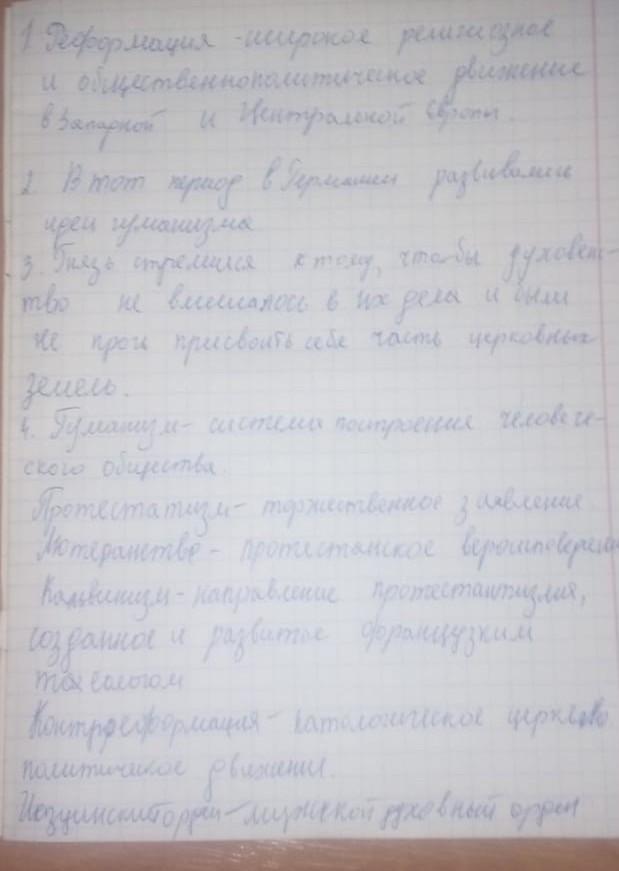 1 Реформация - широкое религиозное
и общественнополитическое движение
в Западной и Центральной Европы.
2 В тот период в Германии развивались
идеи гуманизма
3. Князь стремился к тому, что-бы духовен-
тво не вмешалось в их дела и были
не проч присвоить себе часть церковных
земель.
4. Гуманизм - система построения человече-
ского общества.
Протестатизм - торжественное заявление
Лютеранство - протестанское
Кальвинизм - направление протестантизма,
созданное и развитое французким
теологом
Контрреформация - катологическое церковно
политичикое движение.
орден - мужской духовный орден